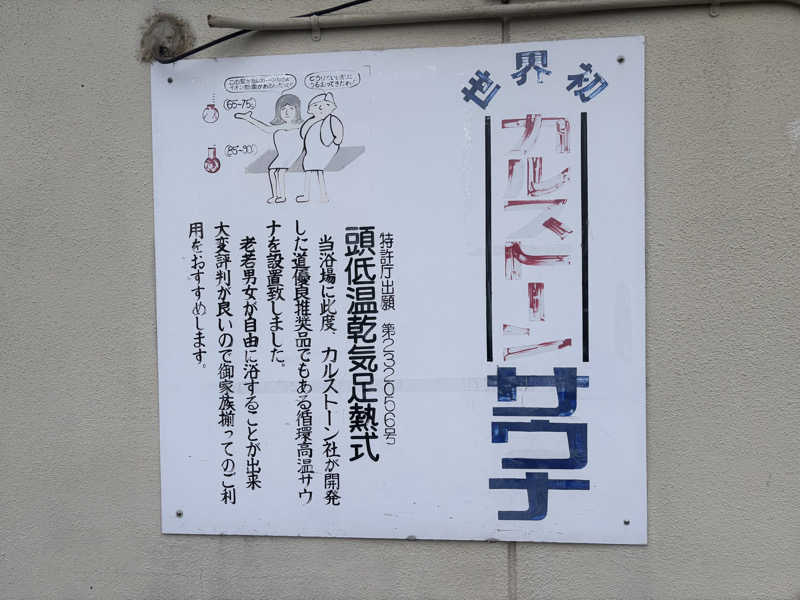 世界初
カルストーン
サウナ
特許庁出願 第232056号
頭低温乾気足熱式
当浴場に此度、カルストーン社が開発
した道優良推奨品でもある循環高温サウ
ナを設置致しました。
老若男女が自由に浴することが出来
大変評判が良いので御家族揃ってのご利
用をおすすめします。
(65~75°)
(85~90°)